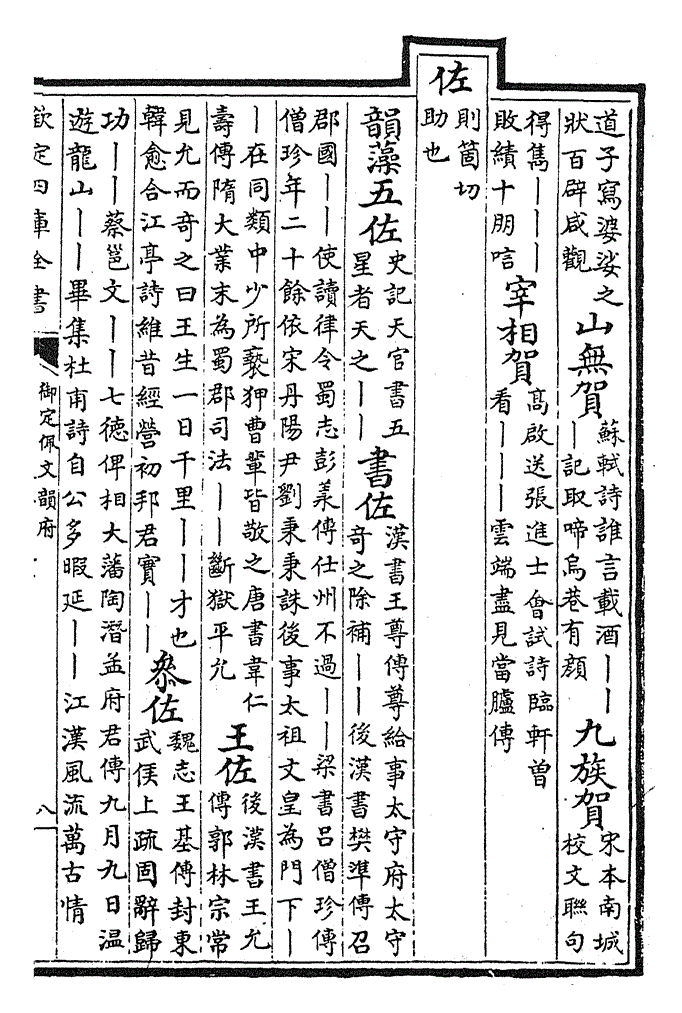 道子寫婆娑之
狀百辟咸觀
山無賀
蘇軾詩誰言載酒丨丨
丨記取啼烏巷有顔
九族賀
宋本南城
校文聯句
得雋丨丨丨
敗績十朋唁
宰相賀
髙啟送張進士會試詩臨軒曽
看丨丨丨雲端盡見當臚傳
佐
則箇切
助也
韻藻五佐
史記天官書五
星者天之丨丨
書佐
漢書王尊傳尊給事太守府太守
奇之除補丨丨後漢書樊準傳召
郡國丨丨使讀律令蜀志彭羕傳仕州不過丨丨梁書吕僧珍傳
僧珍年二十餘依宋丹陽尹劉秉秉誅後事太祖文皇為門下丨
丨在同類中少所䙝狎曹輩皆敬之唐書韋仁
壽傳隋大業末為蜀郡司法丨丨斷獄平允
王佐
後漢書王允
傳郭林宗常
見允而奇之曰王生一日千里丨丨才也
韓愈合江亭詩維昔經營初邦君實丨丨
叅佐
魏志王基傳封東
武侯上疏固辭歸
功丨丨蔡邕文丨丨七德俾相大藩陶潛孟府君傳九月九日温
遊龍山丨丨畢集杜甫詩自公多暇延丨丨江漢風流萬古情
欽定四庫全書
御定佩文韻府
八